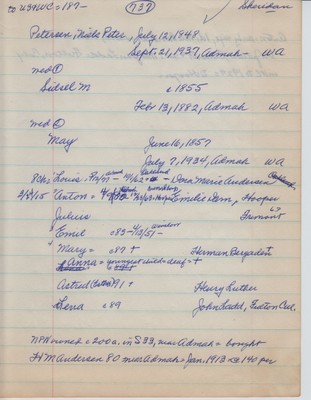 to USA & WC = 187-
(737)
Sheridan
Petersen, Niels Peter, July 12, 1848
Sept. 21, 1937, Admah - WA
med ①
Sidsel M
c 1855
Feb 13, 1882, Admah WA
med ②
May
June 16, 1857
July 7, 1934, Admah WA
8Ch: Louis, Dora Marie Andersen
3/8/15 Anton = Emilie Ham, Hooper
Julius
67
Fremont
Emil c 83 - 4/13/51 -
Mary = c 87 + Herman Bergadett
Anna = youngest child = deaf = +
Astrid 91 + Henry Luther
Lena c 89 John Ladd,
NP N owned c 200 a. in S 33, near Admah = bought
H M Andersen 80 near Admah = Jan. 1913 @ 140 per